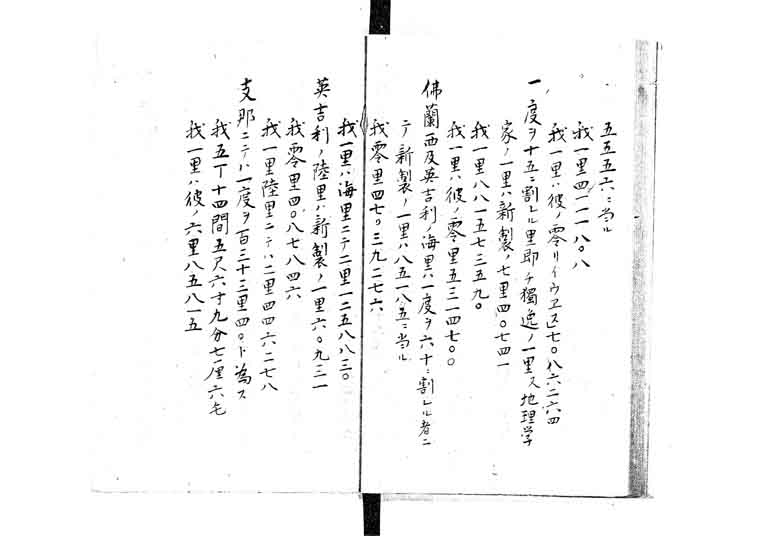 五五五六ニ当ル
我一里四一一一八〇八
我一里ハ彼ノ零リイウヱス七〇八六二六四
一度ヲ十五ニ割レル里即チ獨逸ノ一里ス地理学
家ノ一里ハ新製ノ七里四〇七四一
我一里八八一五七三五九〇
我一里ハ彼ノ零里五三一四七〇〇
佛蘭西及英吉利ノ海里ハ一度ヲ六十ニ割レル者ニ
テ新製ノ一里ハ八五一八五ニ当ル
我零里四七〇三九二七六
我一里ハ海里ニテ二里一二五八八三〇
英吉利ノ陸里ハ新製ノ一里六〇九三一
我零里四〇八七八四六
我一里陸里ニテハ二里四四六二七八
支那ニテハ一度ヲ百三十三里四〇ト為ス
我五丁十四間五尺六寸九分七厘六毛
我一里ハ彼ノ六里八五八一五